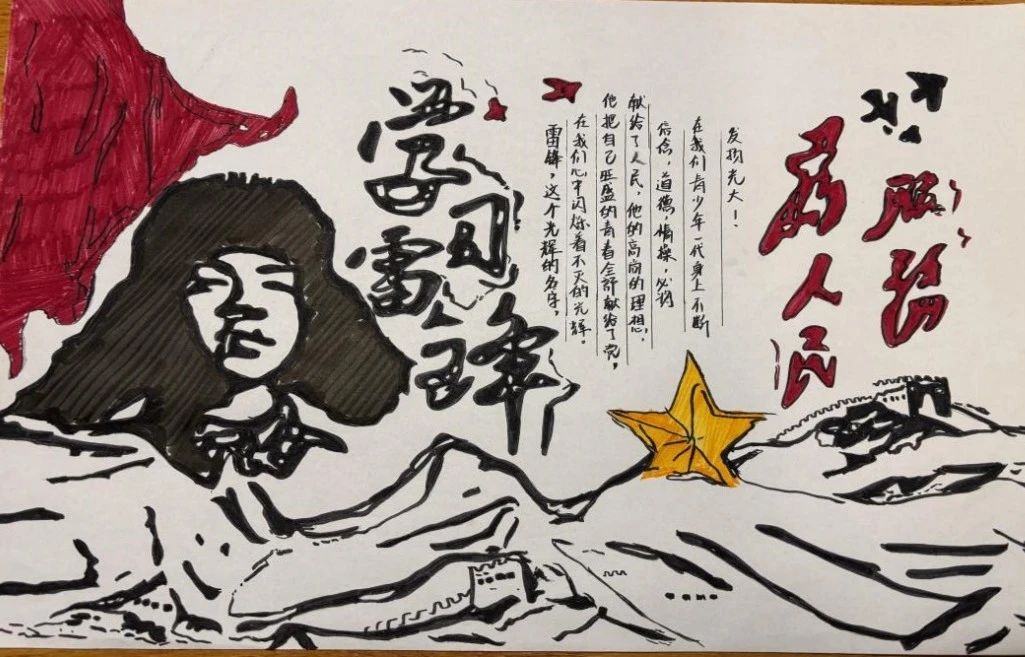 学习
雷锋
雷锋，这个光辉的名字，
在我们心中闪烁着不灭的光辉。
他把自己旺盛的青春全部献给了党，
献给了人民，他的高尚的理想，
信念，道德，情操，必将
在我们青少年一代身上不断
发扬光大！
為人民
服務